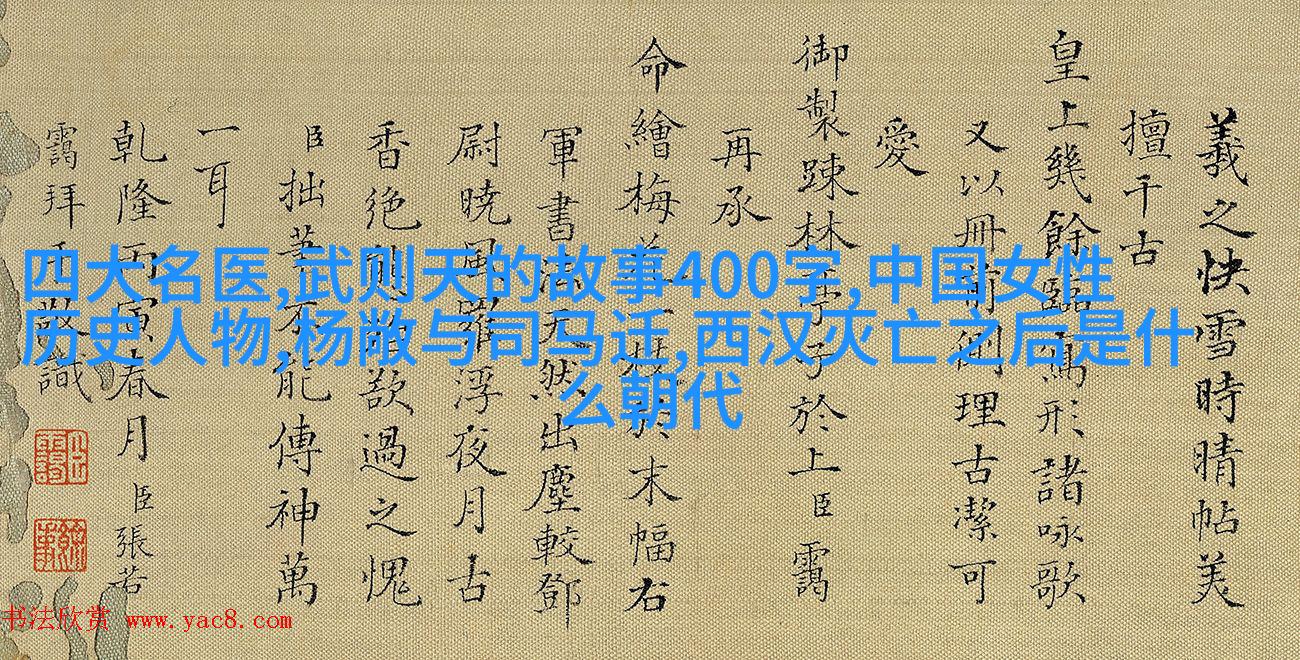 義之快雪時晴帖美
擅千古
皇上幾餘臨寫形諸詠歌
又以冊前側理古潔可
愛
御製踈林亭子於上臣靄
再承
命繪梅一枝於末幅右
軍書法天然出塵較鄧
尉曉風羅浮夜月古
香绝則歎過之愧
臣拙筆不能傳神萬
一耳
乾隆丙寅春月臣張若
靄拜手敬識
四大名医,武则天的故事400字,中国女性
历史人物,杨敞与司马迁,西汉灭亡之后是什
么朝代
书法欣赏 www.yac8.com